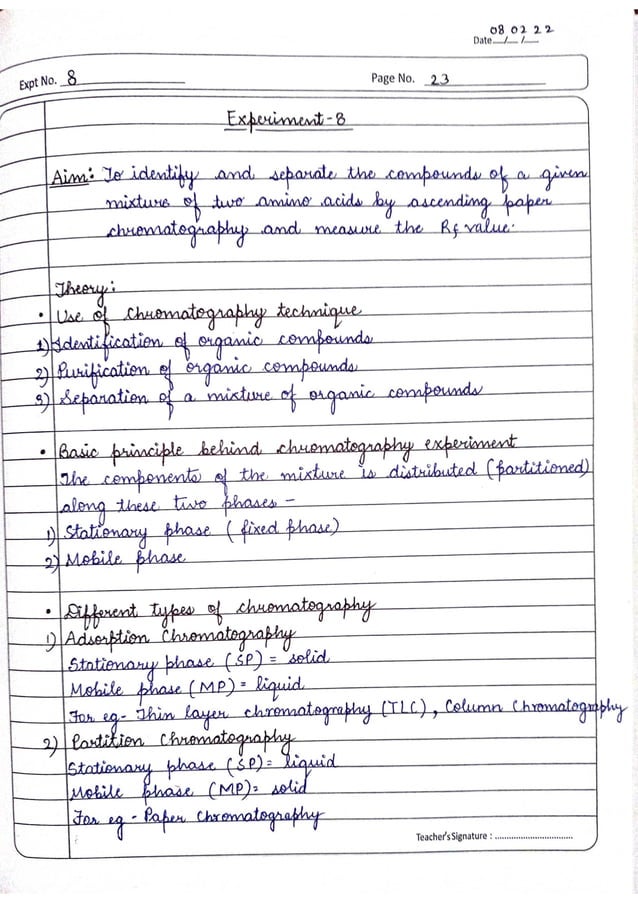 08 02 22
Date__/__/__
Expt No. 8
Page No. 23
Experiment-8
Aim: To identify and separate the compounds of a given
mixture of two amino acids by ascending paper
chromatography and measure the Rf value.
Theory:
• Use of Chromatography technique
1) Identification of organic compounds
2) Purification of organic compounds
3) Separation of a mixture of organic compounds
• Basic principle behind chromatography experiment
The components of the mixture is distributed (partitioned)
along these two phases -
1) Stationary phase (fixed phase)
2) Mobile phase
• Different types of chromatography
1) Adsorption Chromatography
Stationary phase (SP) = solid
Mobile phase (MP) = liquid
For eg- Thin layer chromatography (TLC), Column Chromatography
2) Partition Chromatography
Stationary phase (SP) = liquid
Mobile phase (MP) = solid
For eg - Paper Chromatography
Teacher's Signature : ................................